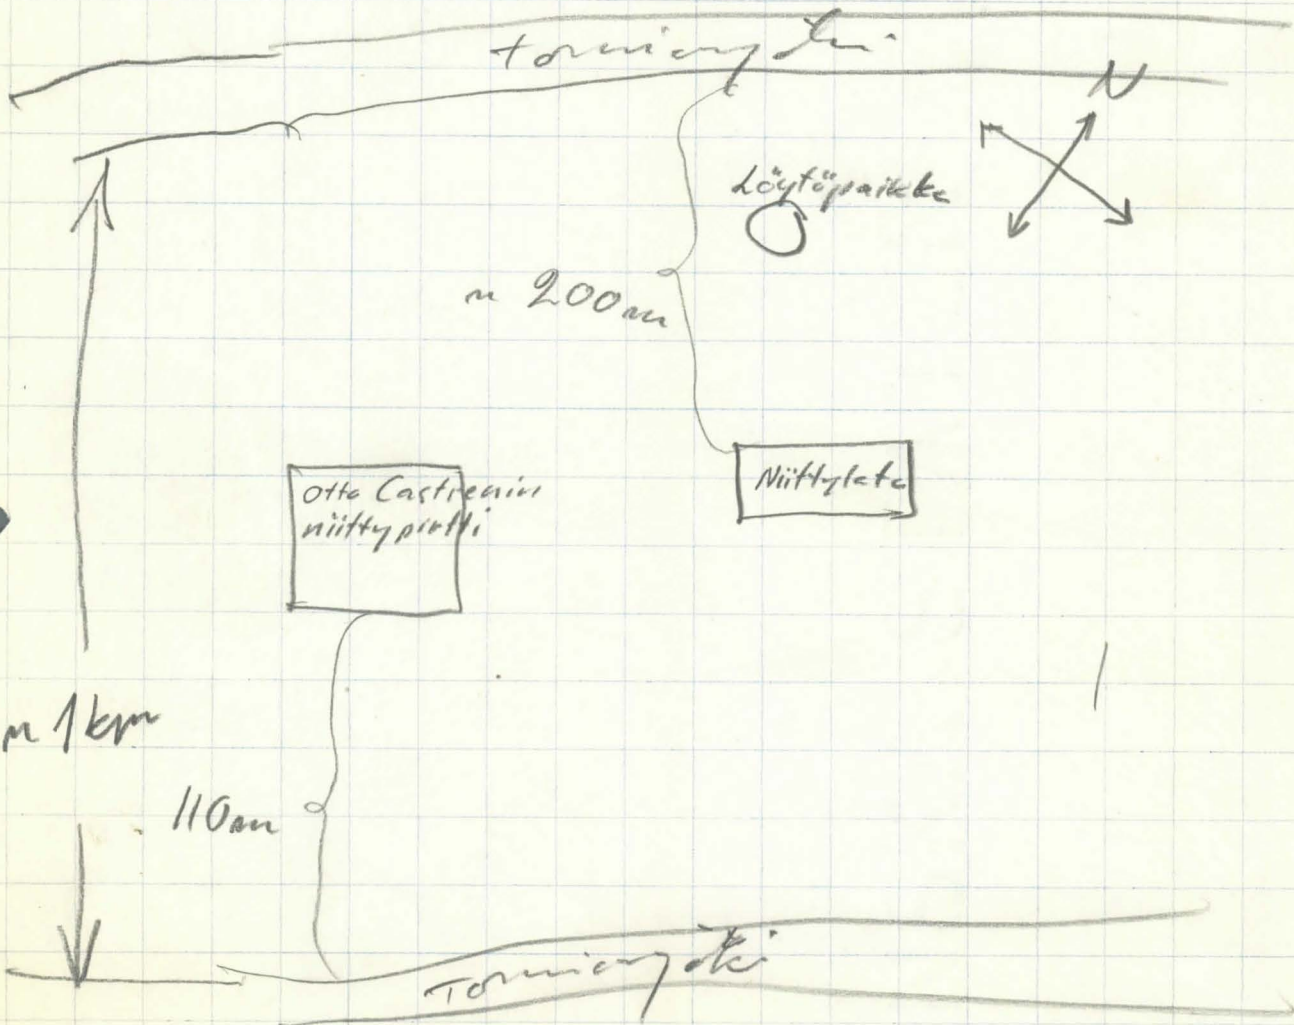 Tornionjoki
N
Löytöpaikka
n 200m
Otto Castrenin
niittypirtti
Niittylato
n 1km
110m
Tornionjoki